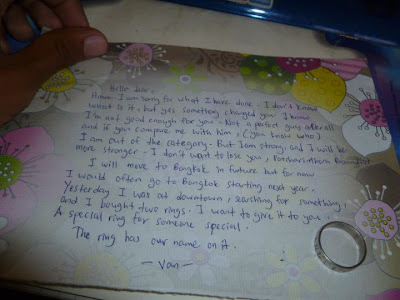 Hello dear,
Hmm. I am sorry for what I have done. I don't know
what is it, but yes something changed you. I know
I'm not good enough for you. Not a perfect guy after all
and if you compare me with him, (you know who)
I am out of the category. But I am strong, and I will be
more stronger. I don't want to lose you,
I will move to Bangkok in future but for now,
I would often go to Bangkok starting next year.
Yesterday I was at downtown, searching for something,
and I bought two rings. I want to give it to you.
A special ring for someone special.
The ring has our name on it.
— Van —